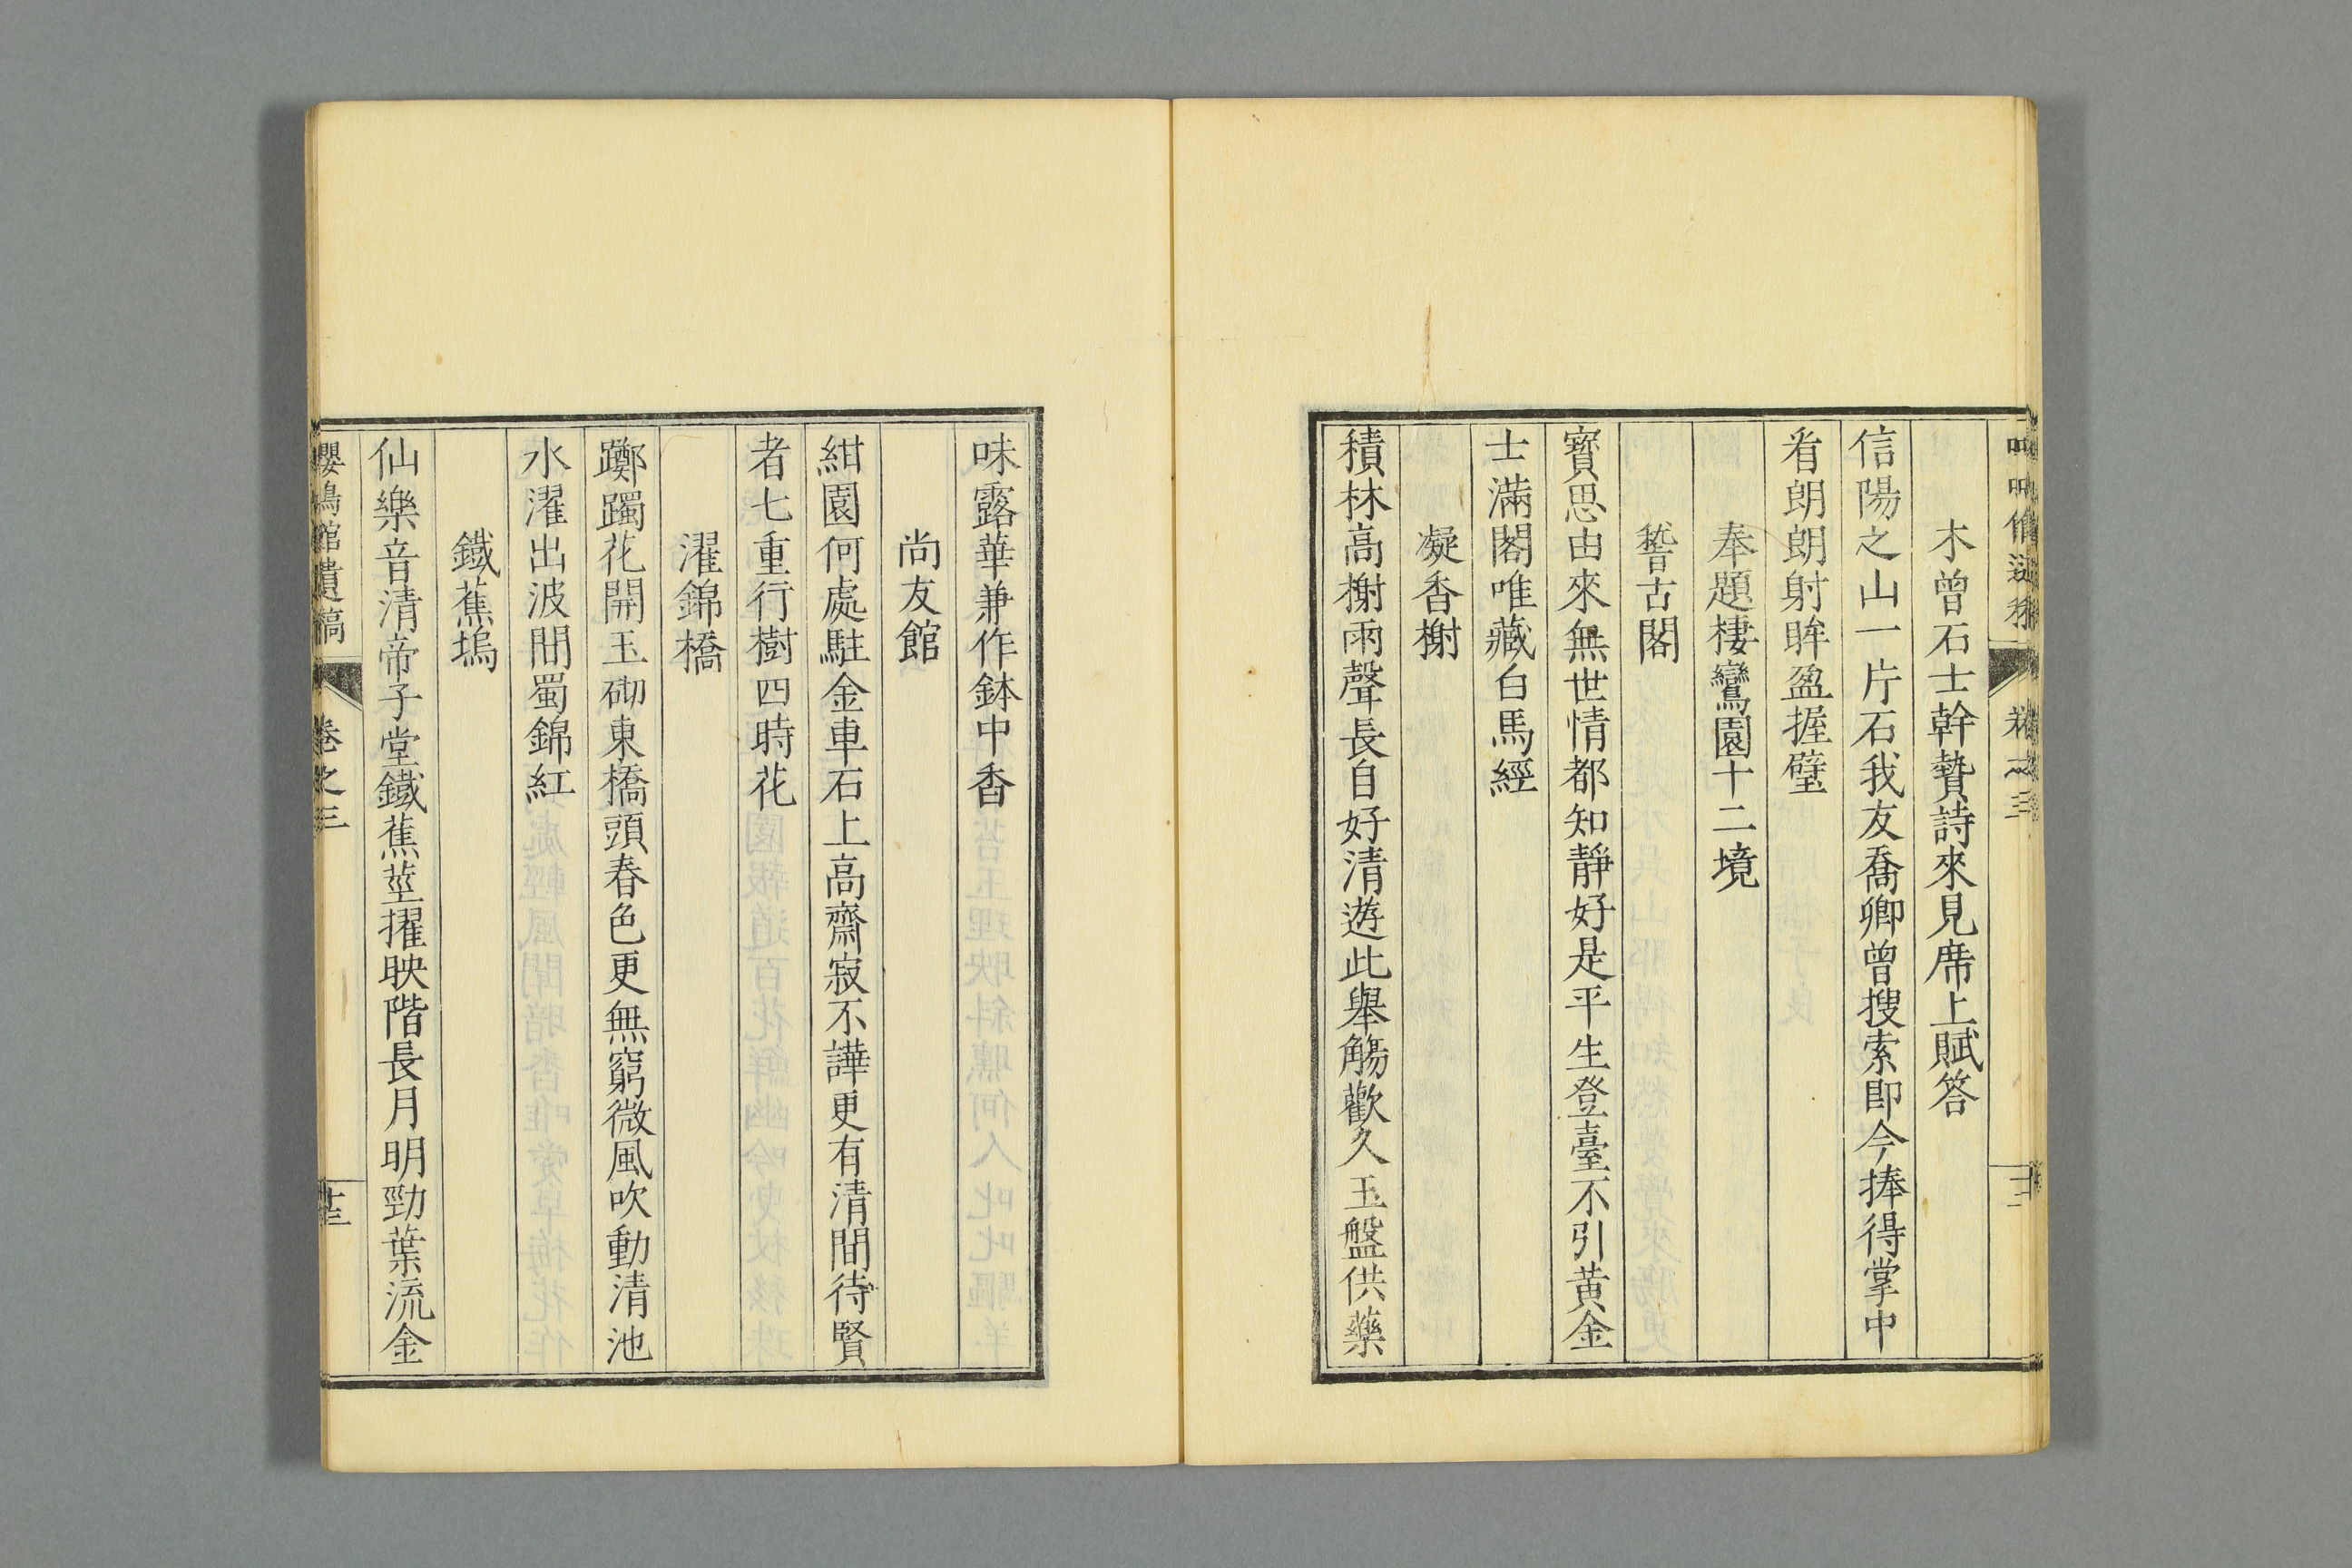 木曽石士幹贄詩來見席上賦答
信陽之山一片石我友喬卿曽搜索即今捧得掌中
看朗朗射眸盈握璧
奉題棲鸞園十二境
稽古閣
寳思由來無世情都知靜好是平生登臺不引黄金
士滿閣唯藏白馬經
凝香榭
積林高榭雨聲長自好清遊此舉觴歡久玉盤供藥
味露華兼作鉢中香
尚友館
紺園何處駐金車石上高齋寂不譁更有清間待賢
者七重行樹四時花
濯錦橋
躑躅花開玉砌東橋頭春色更無窮微風吹動清池
水濯出波間蜀錦紅
鐵蕉塢
仙樂音清帝子堂鐵蕉莖擢映階長月明勁葉流金
嚶鳴館遺稿 卷之三 十三